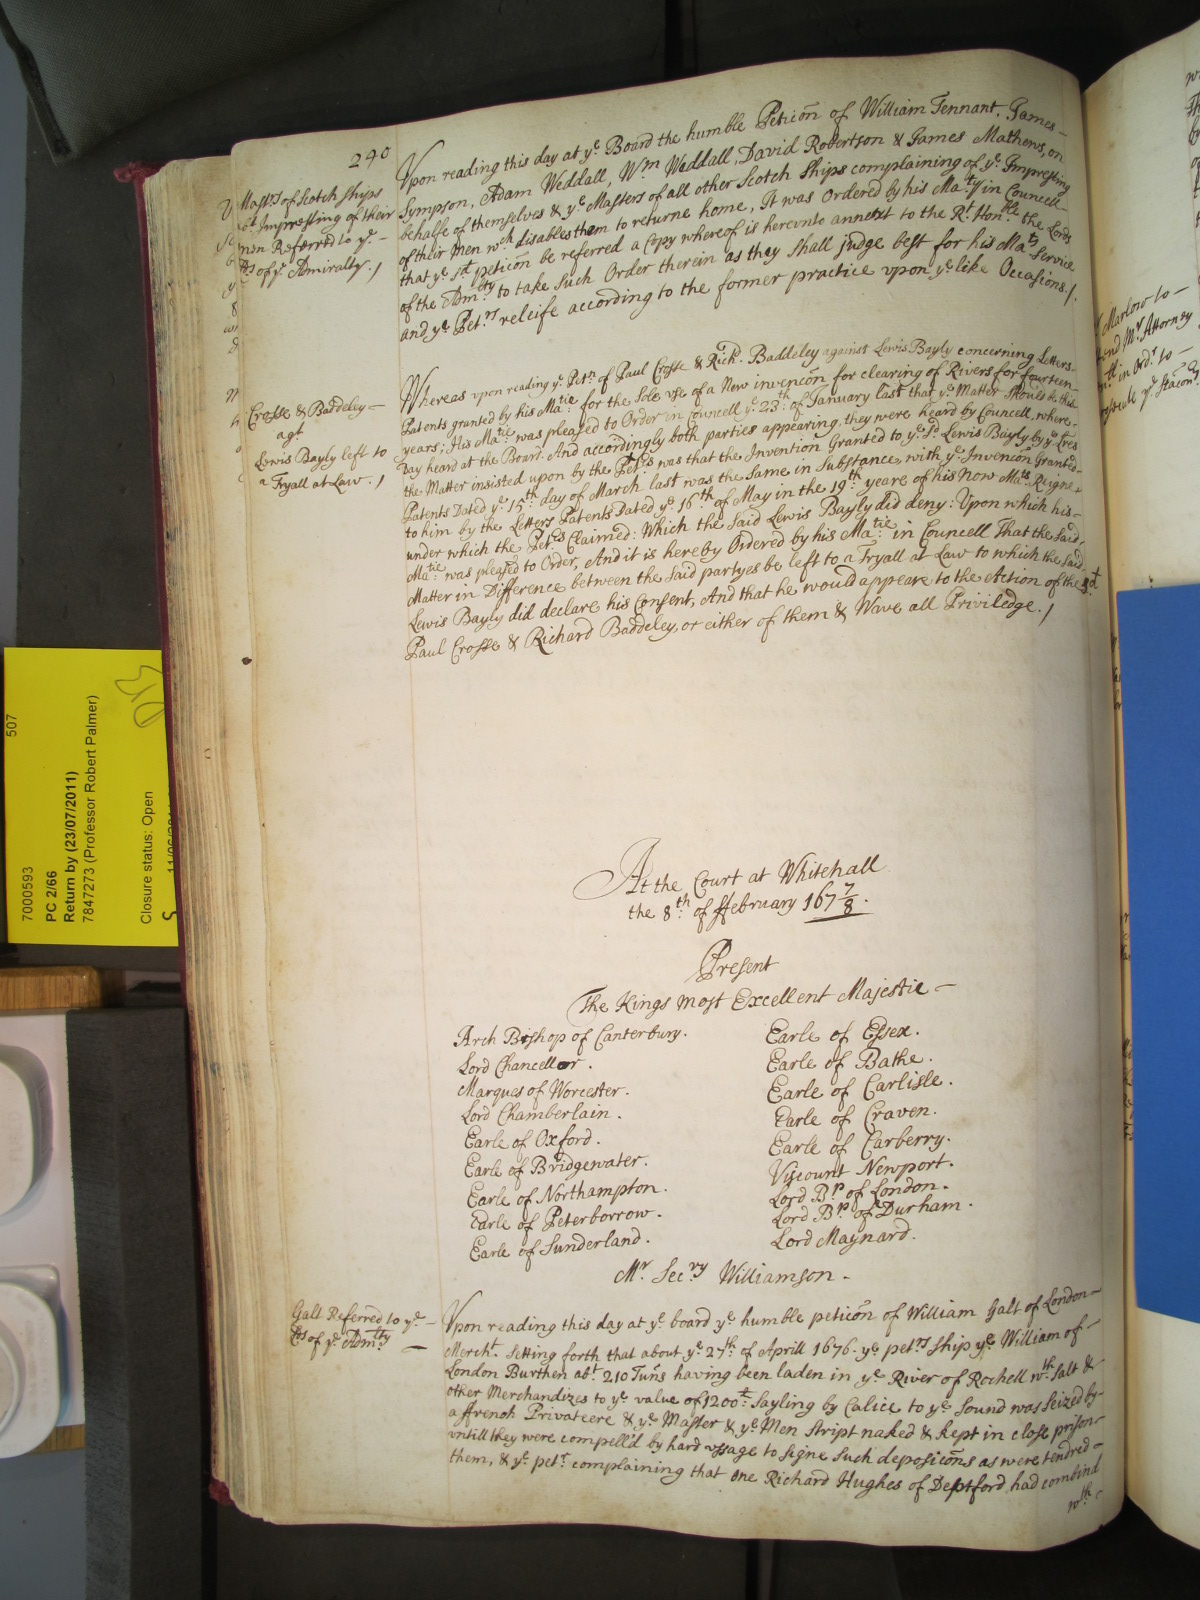 240
Mast.rs of Scotch Ships
ab.t Impressing of their
men Referred to y.e
L.ds of y.e Admiralty. /
Vpon reading this day at y.e Board the humble Peticõn of William Tennant, James
Sympson, Adam Weddall, W.m Weddall, David Robertson & James Mathews, on
behalfe of themselves & y.e Masters of all other Scotch Ships complaining of y.e Impressing
of their Men w.ch disables them to returne home, It was Ordered by his Ma.ty in Councell
that y.e s.d peticõn be referred a Copy whereof is herevnto annext to the R.t Hon.ble the Lords
of the Adm.lty to take such Order therein as they shall judge best for his Ma.ts Service
and y.e Pet.rs releife according to the former practice vpon y.e like Occasions. /.
Crosse & Baddeley
ag.t
Lewis Bayly left to
a Tryall at Law. /
Whereas vpon reading y.e Pet.n of Paul Crosse & Rich.d Baddeley against Lewis Bayly concerning Letters
Patents granted by his Ma.tie for the Sole vse of a New invencõn for clearing of Rivers for fourteen
years; His Ma.tie was pleased to Order in Councell y.e 23.th of January last that y.e Matter should be this
day heard at the Board. And accordingly both parties appearing, they were heard by Councell, where
the Matter insisted upon by the Pet.rs was that the Invention Granted to y.e s.d Lewis Bayly by y.e Lres
Patents Dated y.e 15.th day of March last was the Same in Substance, with y.e Invencõn Granted
to him by the Letters Patents Dated y.e 16.th of May in the 19.th yeare of his Now Ma.ts Reigne
under which the Pet.rs Claimed: Which the said Lewis Bayly did deny: Upon which his
Ma.tie was pleased to Order, And it is hereby Ordered by his Ma.tie in Councell That the said
Matter in Difference between the said partyes be left to a Tryall at Law to which the said
Lewis Bayly did declare his Consent, And that he would appeare to the Action of the s.d
Paul Crosse & Richard Baddeley, or either of them & Wave all Priviledge. /
At the Court at Whitehall
the 8.th of ffebruary 167 7/8.
Present
The Kings most Excellent Majestie
Arch Bishop of Canterbury.
Lord Chancellor.
Marques of Worcester.
Lord Chamberlain.
Earle of Oxford.
Earle of Bridgewater.
Earle of Northampton.
Earle of Peterborrow.
Earle of Sunderland.
Earle of Essex.
Earle of Bathe.
Earle of Carlisle.
Earle of Craven.
Earle of Carberry.
Viscount Newport.
Lord B.p of London.
Lord B.p of Durham.
Lord Maynard.
M.r Sec.ry Williamson.
Galt Referred to y.e
L.ds of y.e Adm.lty
Vpon reading this day at y.e board y.e humble peticõn of William Galt of London
Merch.t Setting forth that about y.e 27.th of Aprill 1676. y.e pet.rs ship y.e William of
London Burthen ab.t 210 Tuñs having been laden in y.e River of Rochell w.th Salt &
other Merchandizes to y.e value of 1200.£ Sayling by Calice to y.e Sound was Seized by
a ffrench Privateere & y.e Master & y.e Men stript naked & kept in close prison
vntill they were compell'd by hard vssage to signe such deposicõns as were tendred
them, & y.e pet.r complaining that one Richard Hughes of Deptford had combind
w.th
Marlow to
end M.r Attorney
in Ord.r to
7000593
507
PC 2/66
Return by (23/07/2011)
7847273 (Professor Robert Palmer)
Closure status: Open